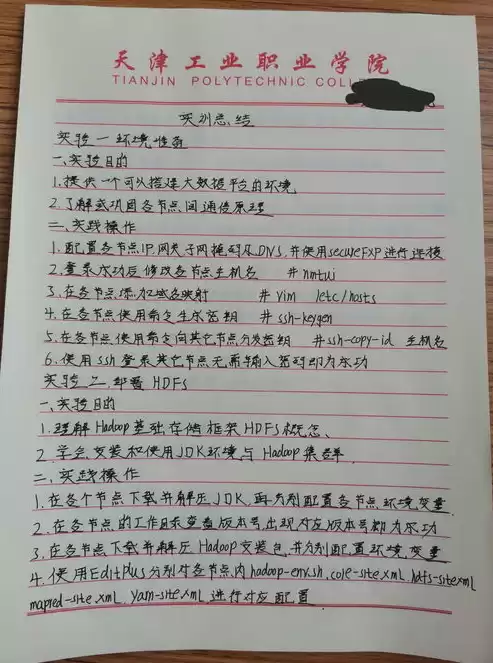 天津工业职业学院
TIANJIN POLYTECHNIC COLL
实训总结
实验一环境准备
一、实验目的
1.提供一个可以搭建大数据平台的环境
2.了解或巩固各节点间通信原理
二、实践操作
1.配置各节点IP、网关子网掩码及DNS,并使用secureFXP进行连接
2.登录成功后修改各节点主机名 #nmtui
3.在各节点添加域名映射 #vim /etc/hosts
4.在各节点使用命令生成密钥 #ssh-keygen
5.在各节点使用命令向其它节点分发密钥 #ssh-copy-id 主机名
6.使用ssh登录其它节点无需输入密码即为成功
实验二、部署HDFS
一、实验目的
1.理解Hadoop基础存储框架HDFS概念、
2.学会安装和使用JDK环境与Hadoop集群
二、实践操作
1.在各个节点下载并解压JDK,再分别配置各节点环境变量
2.在各节点的工作目录查看版本号,出现对应版本号即为成功
3.在各节点下载并解压Hadoop安装包,并分别配置环境变量
4.使用EditPlus分别对各节点内hadoop-env.sh、core-site.xml、hdfs-site.xml
mapred-site.xml、yarn-site.xml、进行对应配置